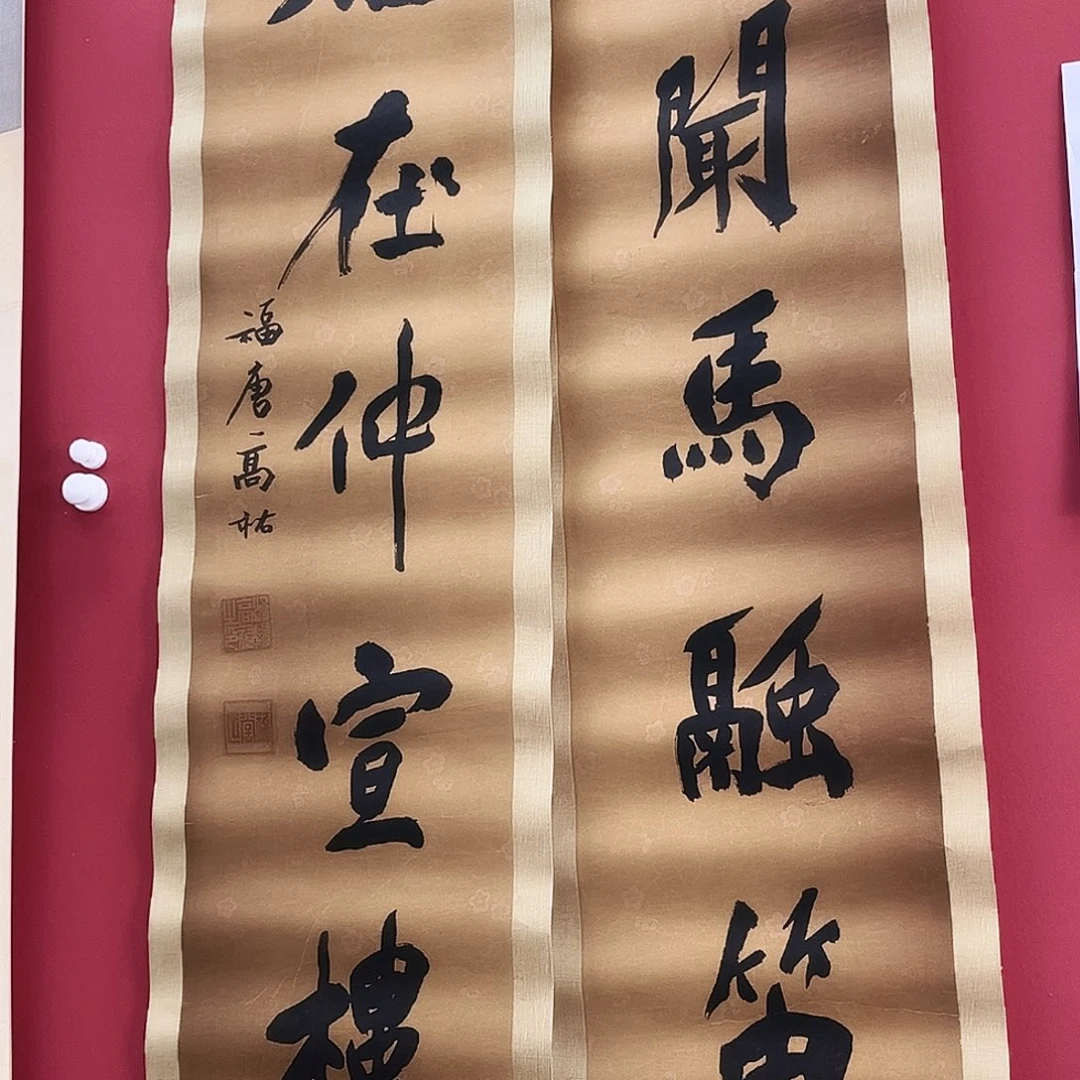 聞馬融笛
在仲宣樓
福唐高祐